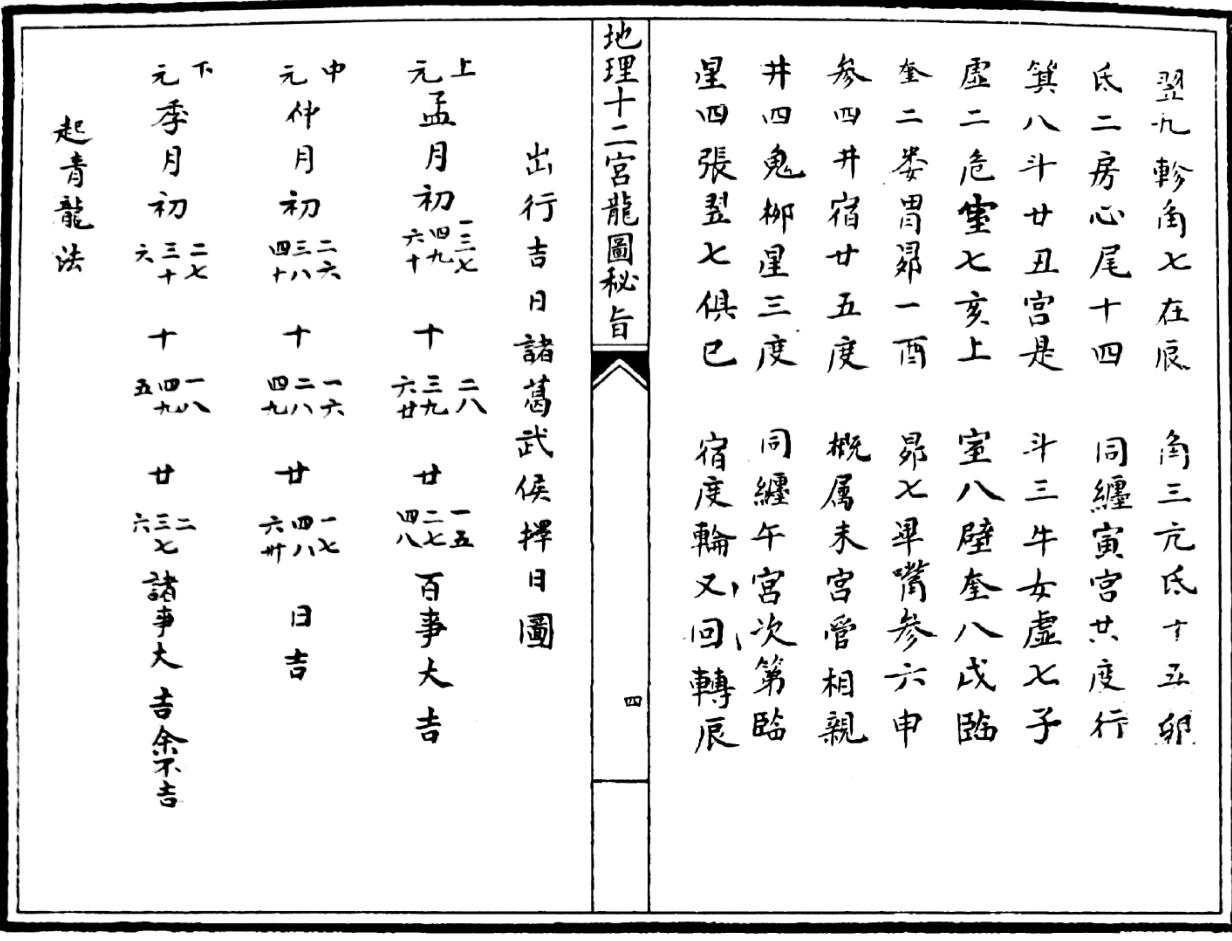 翌九軫角七在辰　角三亢氐十五卯
氐二房心尾十四　同纏寅宮廿度行
箕八斗廿丑宮是　斗三牛女虛七子
虛二危室七亥上　室八壁奎八戌臨
奎二娄胃昴一酉　昴七畢嘴参六申
参四井宿廿五度　概属未宮管相親
井四鬼柳星三度　同纏午宮次第臨
星四張翌七俱巳　宿度輪又回轉辰
地理十二宮龍圖秘旨
四
出行吉日諸葛武侯擇日圖
上元孟月初一三七四九六十　十二八三九六廿　廿一五二七四八　百事大吉
中元仲月初二六三八四十　十一六二八四九　廿一七四八六卅　日吉
下元季月初二七三十六　十一八四九五　廿二三七六　諸事大吉余不吉
起青龍法